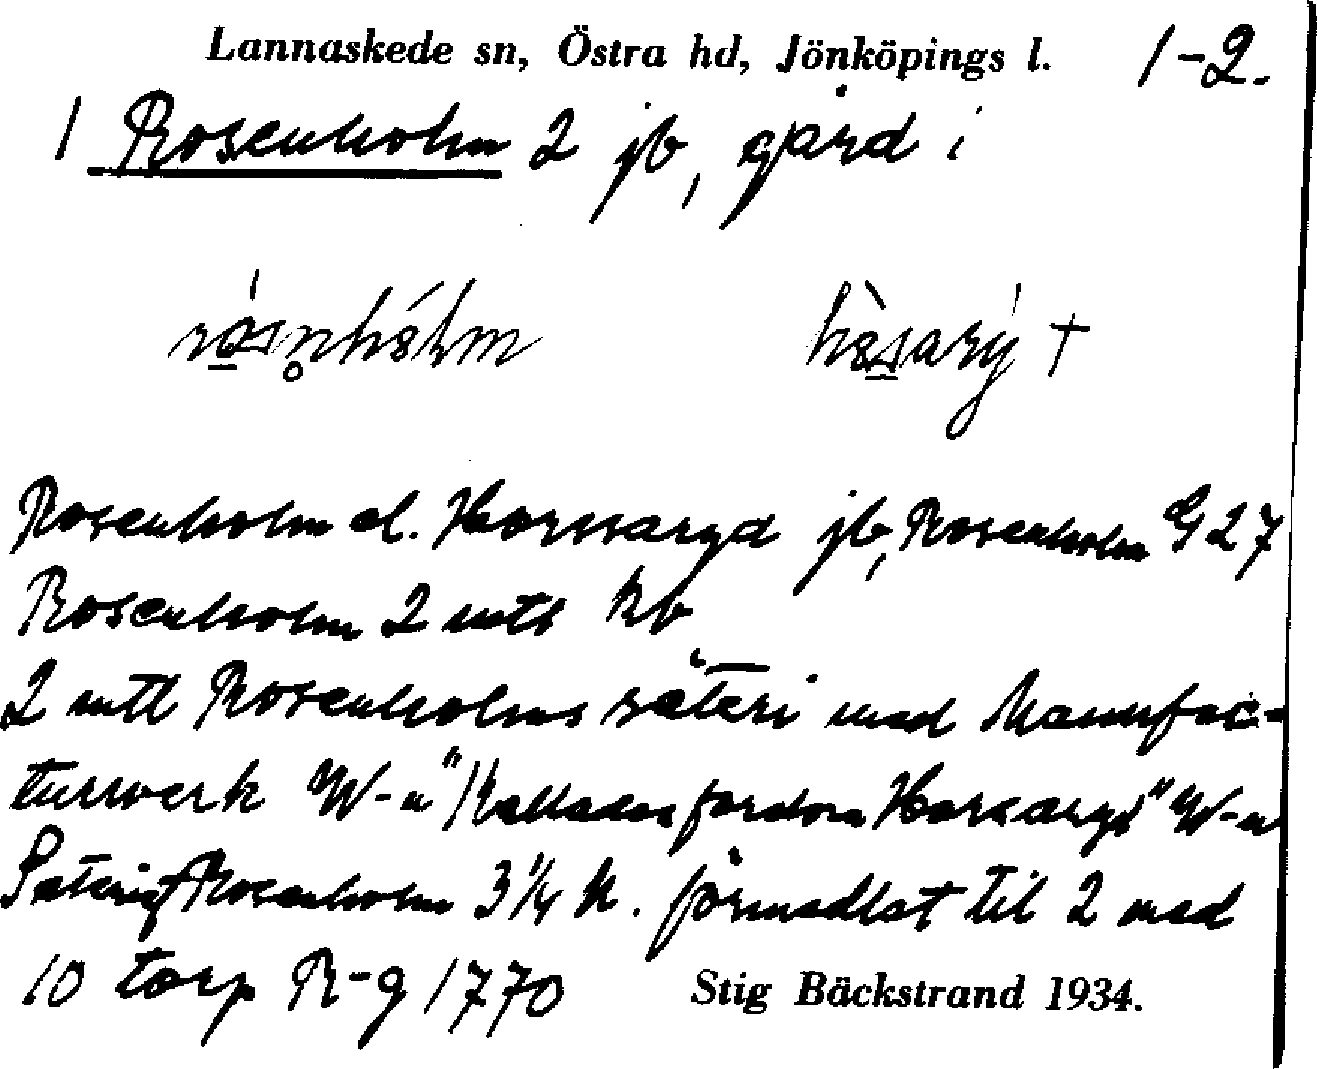 Lannaskede sn, Östra hd, Jönköpings l. 1-2.
1 Rosenholm 2 jb, gård i
Rosenholm el. Horssaryd jb, Rosenholm G 27
Rosenholm 2 mtl Rb
2 mtl Rosenholms säteri med Manufac-
turwerk W-n "Kallades fordom Horsaryd" W-n
Säteriet Rosenholm 3 1/4 h. förmedlat til 2 med
10 torp R-g 1770 Stig Bäckstrand 1934.